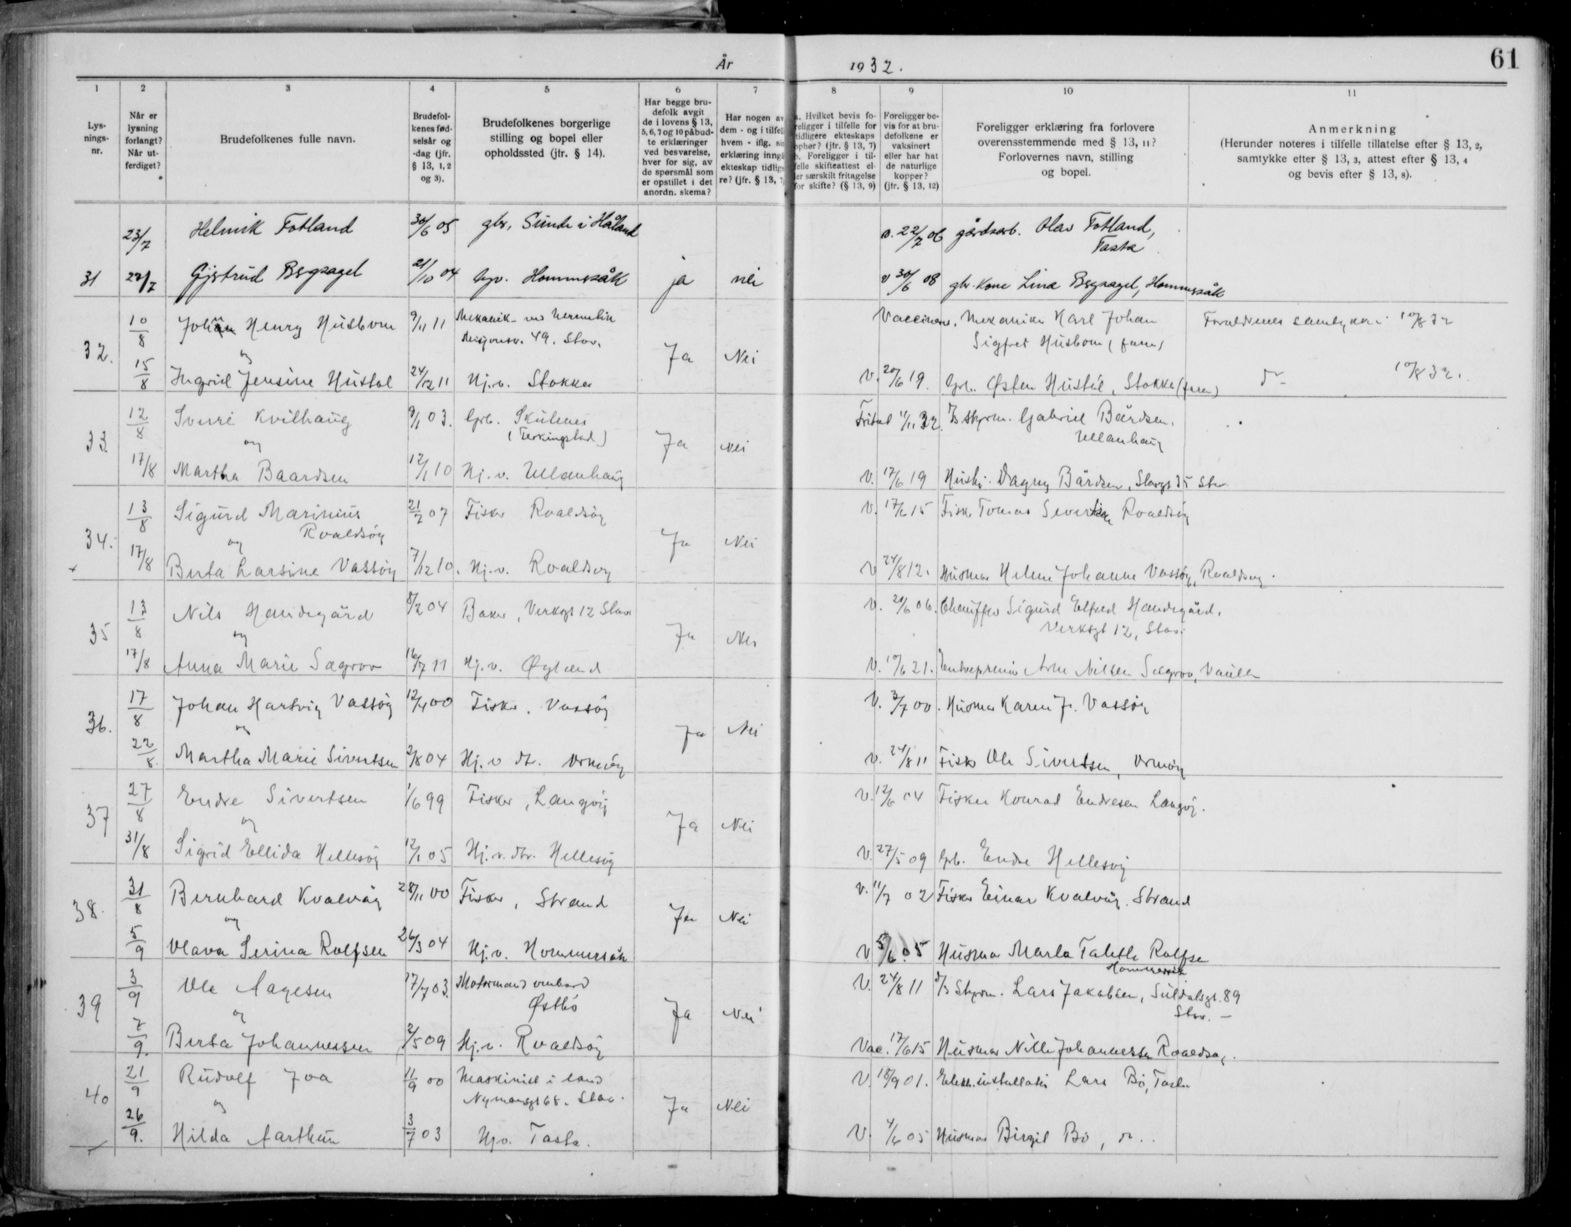 61
År 1932.
1 2 3 4 5 6 7 8 9 10 11
Lys-
nings-
nr.
Når er
lysning
forlangt?
Når ut-
ferdiget?
Brudefolkenes fulle navn.
Brudefol-
kenes fød-
selsår og
-dag (jfr.
§ 13, 1, 2
og 3).
Brudefolkenes borgerlige
stilling og bopel eller
opholdssted (jfr. § 14).
Har begge bru-
defolk avgit
de i lovens § 13,
5, 6, 7 og 10 påbud-
te erklæringer
ved besvarelse,
hver for sig, av
de spørsmål som
er opstillet i det
anordn. skema?
Har nogen av
dem - og i tilfel
hvem - iflg.
erklæring inngå
ekteskap tidlig
re? (jfr. § 13, 7
a. Hvilket bevis fo-
religger i tilfelle for
tidligere ekteskaps
ophør? (jfr. § 13, 7)
b. Foreligger i til-
felle skifteattest el-
ler særskilt fritagelse
for skifte? (§ 13, 9)
Foreligger be-
vis for at bru-
defolkene er
vaksinert
eller har hat
de naturlige
kopper?
(jfr. § 13, 12)
Foreligger erklæring fra forlovere
overensstemmende med § 13, 11?
Forlovernes navn, stilling
og bopel.
Anmerkning
(Herunder noteres i tilfelle tillatelse efter § 13, 2,
samtykke efter § 13, 3, attest efter § 13, 4
og bevis efter § 13, 8).
23/7 Helmik Fotland 30/6 05 gbr. Sunde i Håland v. 22/7 06 gårdsarb. Olav Fotland,
Tasta
31 27/7 Gjertrud Bsgpagel 21/10 04 hjv. Hommersåk ja nei v 30/6 08 gbr. kone Lina Bsgpagel, Hommersåk
32. 10/8 Johan Henry Husbom 9/11 11 Mekanik. Ja Nei Vaccinene, Mekaniker Karl Johan Foreldrenes samtykke 10/8 32
Misjonsv. 49. Stav. Sigfret Husbom (faren)
og
15/8 Ingrid Jensine Hustøl 24/12 11 Hj.v. Stokka v. 20/6 19. Gbr. Østen Hustøl, Stokka (faren) do - 10/8 32.
33 12/8 Sverre Kvilhaug 9/1 03. Grb. Skudenes Ja Nei Fritat 11/11 32 Fhv. styrm. Gabriel Bårdsen.
(Ferkingstad) Ullanhaug
og
17/8 Martha Baardsen 12/1 10 Hj.v. Ullanhaug v. 17/6 19 Hushj. Dagny Bårdsen, 35 Stav
34. 13/8 Sigurd Marinius 21/2 07 Fisker Roaldsøy Ja Nei v. 17/6 15 Fisker Tomas Sivertsen Roaldsøy
Roaldsøy
og
17/8 Berta Larsine Vassøy 7/12 10. Hj.v. Roaldsøy v 24/8 12. Husmor Helene Johanne Vassøy, Roaldsøy.
35 13/8 Nils Haudegård 8/2 04 Baker, Verksgt 12 Stav Ja Nei v. 29/6 06. Chauffør Sigurd Elfred Haudegård.
Verksgt 12, Stav.
og
17/8 Anna Marie Sægrov 16/7 11 Hj.v. Øyland v. 10/6 21. Entreprenør Arne Nilsen Sægrov, Vaulen
36. 17/8 Johan Hartvig Vassøy 12/4 00 Fisker, Vassøy Ja Nei v. 3/7 00. Husmor Karen J. Vassøy
og
22/8. Martha Marie Sivertsen 2/8 04 Hj.v. dtr. Ormøy v. 24/8 11 Fisker Ole Sivertsen, Ormøy
37 27/8 Endre Sivertsen 1/6 99 Fisker, Langøy Ja Nei v. 12/6 04 Fisker Konrad Endresen Langøy.
og
31/8 Sigrid Ellida Hellesøy 12/1 05 Hj.v. dtr. Hellesøy v. 27/5 09 Grb. Endre Hellesøy
38. 31/8 Bernhard Kvalvåg 28/11 00 Fisker, Strand Ja Nei v. 11/7 02 Fisker Einar Kvalvåg. Strand
og
5/9 Olava Serina Rolfsen 26/3 04 Hj.v. Hommersåk v 5/6 05 Husmor Marta Tabitha Rolfsen
Hommersåk
39 3/9 Ole Aagesen 17/7 03. Motormand ombord Ja Nei v. 24/8 11 Fhv. Styrm. Lars Jakobsen, Suldalsgt. 89
Østbø Stav. -
og
7/9. Berta Johannessen 2/5 09 Hj.v. Roaldsøy Vac. 17/6 15 Husmor Nilla Johannessen Roaldsøy.
40 21/9 Rudolf Joa 11/9 00 Maskinist i land Ja Nei v. 18/9 01. Elektr. installatør Lars Bø, Tasta
Nymansgt 68. Stav.
og
26/9. Hilda Aarthun 3/7 03 Hjv. Tasta. v. 4/6 05 Husmor Birgit Bø, do.